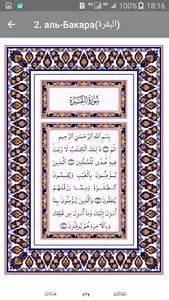 18:16
2. аль-Бакара(البقرة)
سورة البقرة
بسم الله الرحمن الرحيم
الم ذلك الكتاب لا ريب
فيه هدى للمتقين الذين
يؤمنون بالغيب ويقيمون
الصلاة ومما رزقناهم
ينفقون والذين يؤمنون بما
أنزل إليك وما أنزل من
قبلك وبالآخرة هم يوقنون